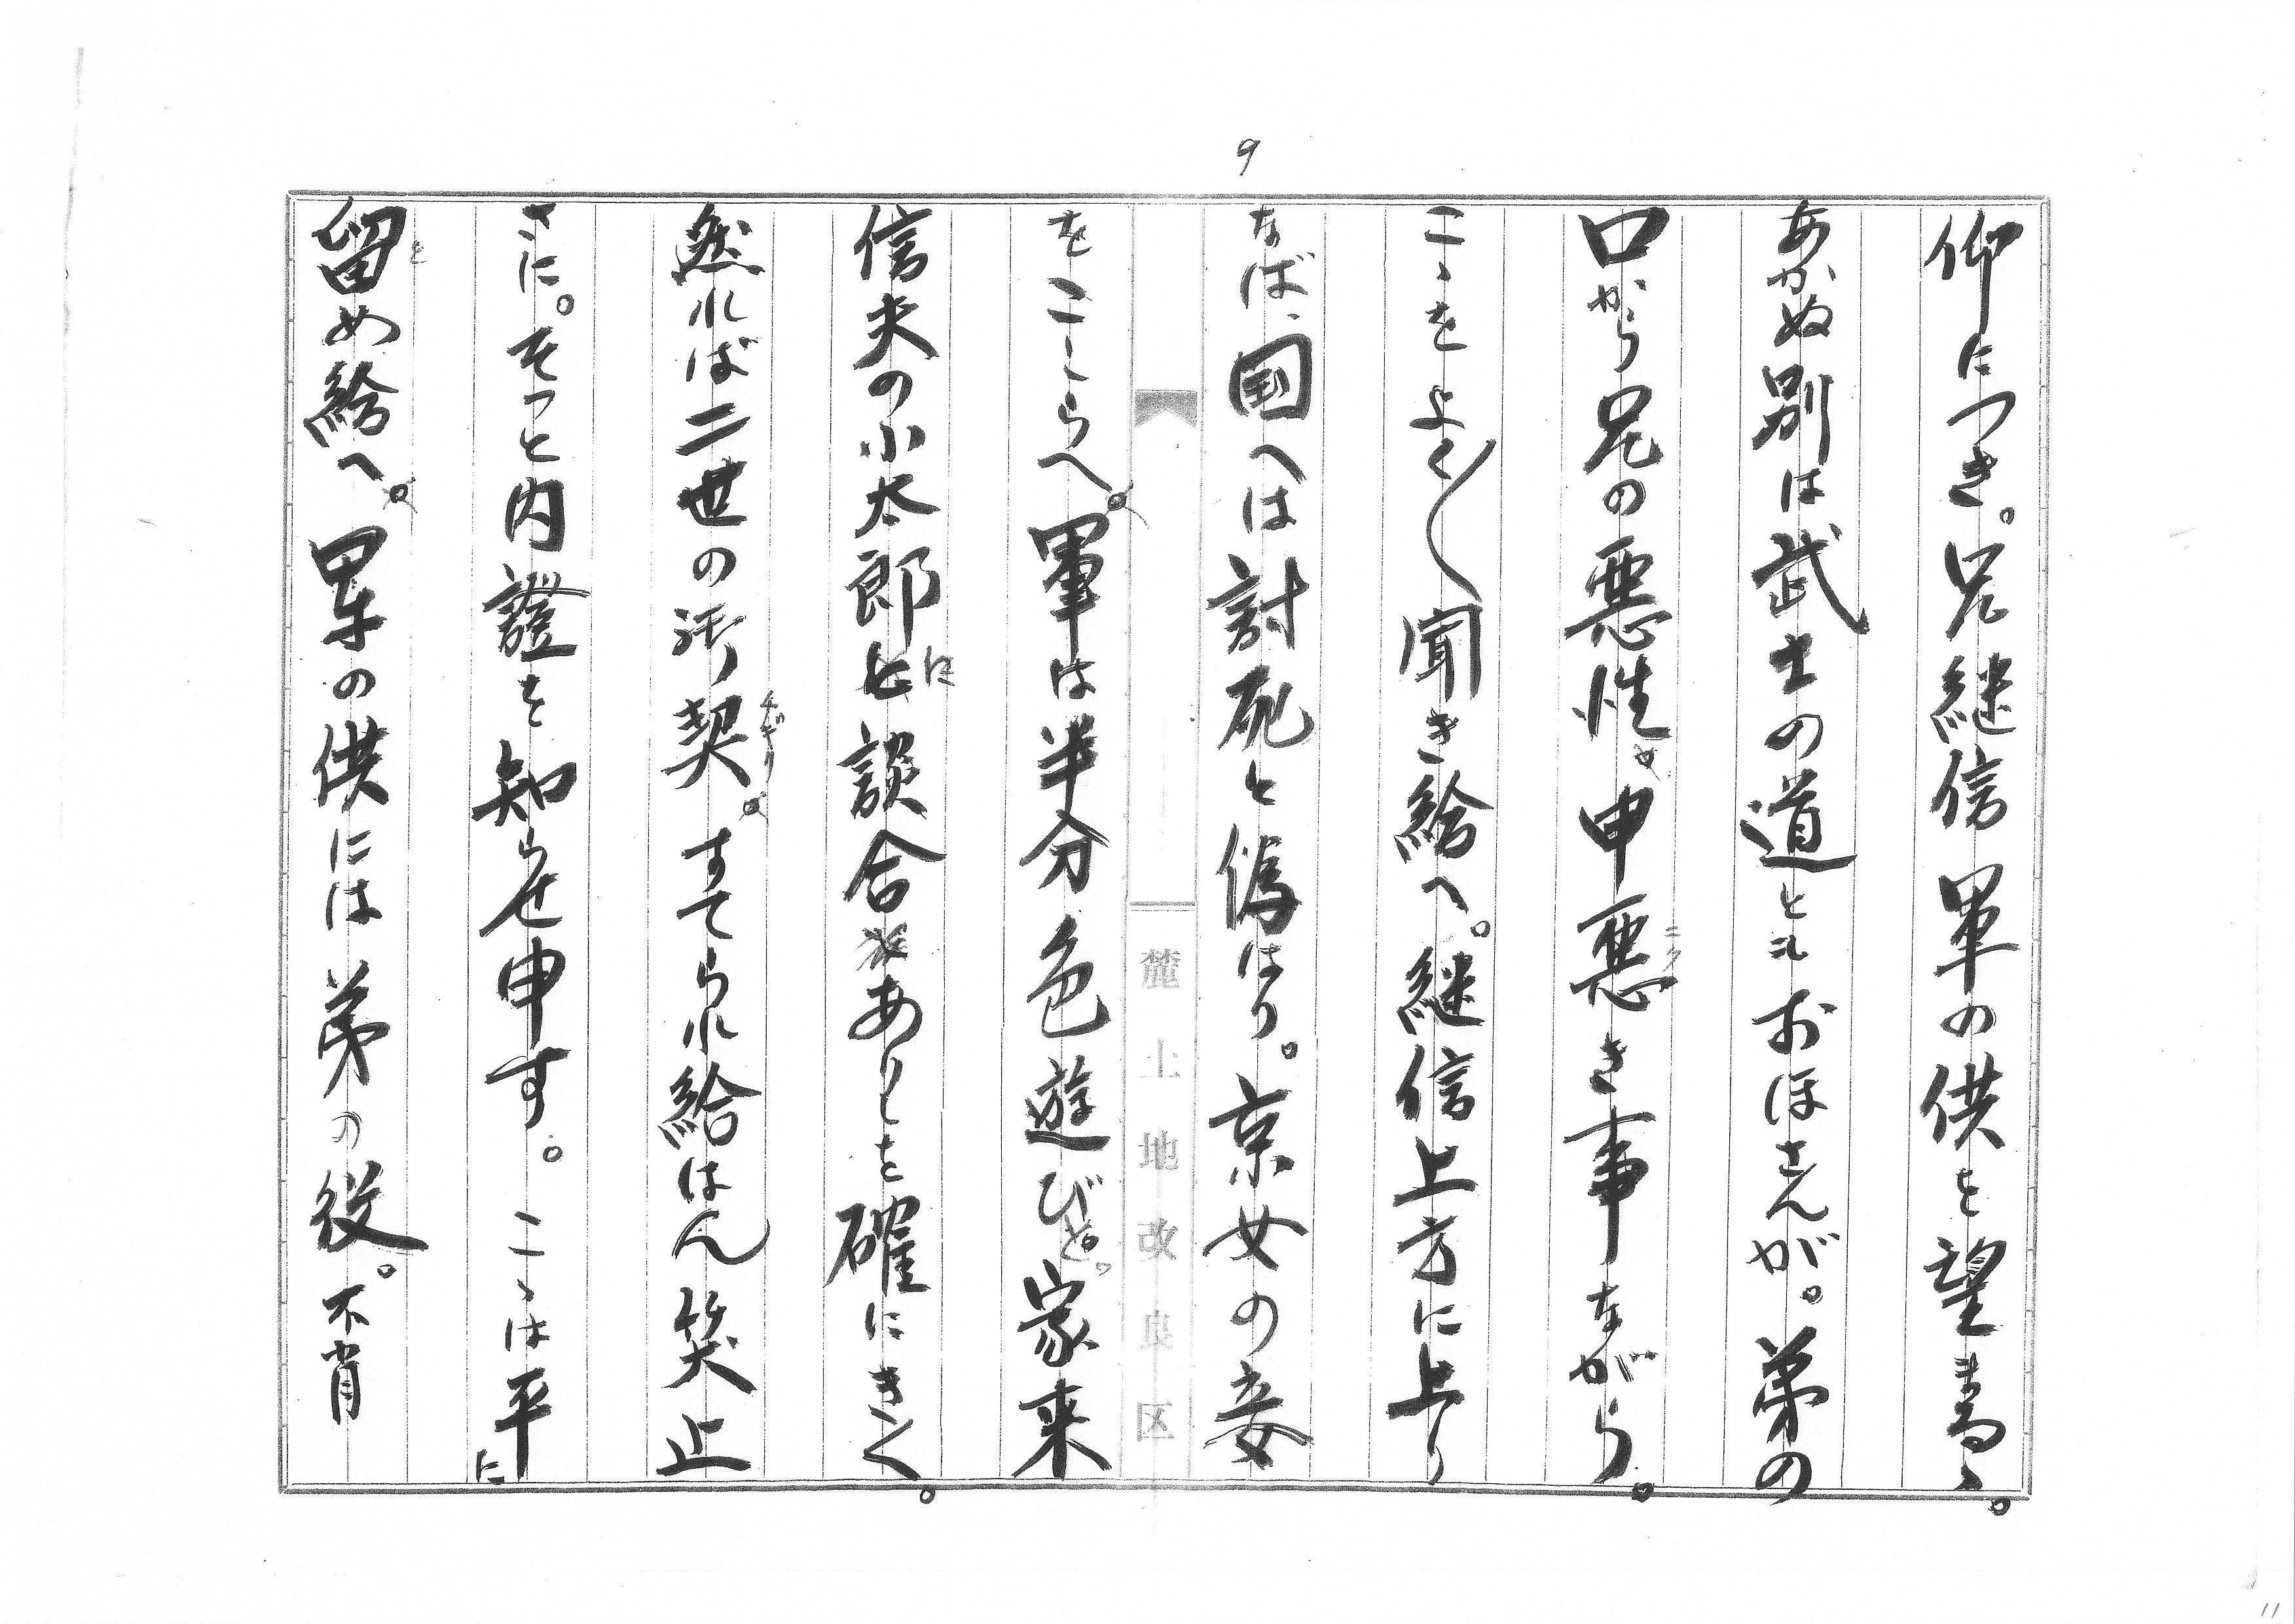 9
仰につき。兄継信軍の供を望まるゝ。
あかぬ別は武士の道ともおほさんが。弟の
口から兄の悪性。申悪き事ながら。
ニク
こゝをよく〱聞き給へ。継信上方に上り
なば、国へは討死と偽はり。京女の妾
をこしらへ。軍は半分色遊びと。家来
信夫の小太郎に談合ありしを確にきく。
然れば二世の御契。すてられ給はん笑止
ちぎり
さに。そつと内證を知らせ申す。こゝは平に
留め給へ。軍の供には弟の役。不肖
と
麓土地改良区
11